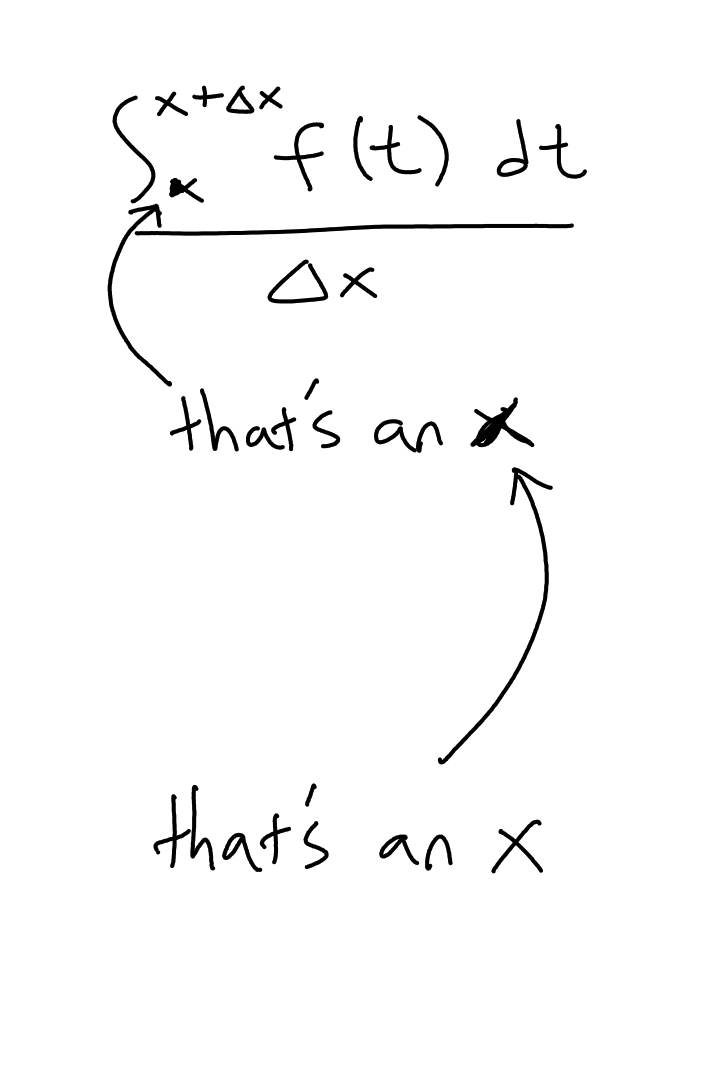 ∫ₓ^{x+Δx} f(t) dt
Δx
that's an x
that's an x